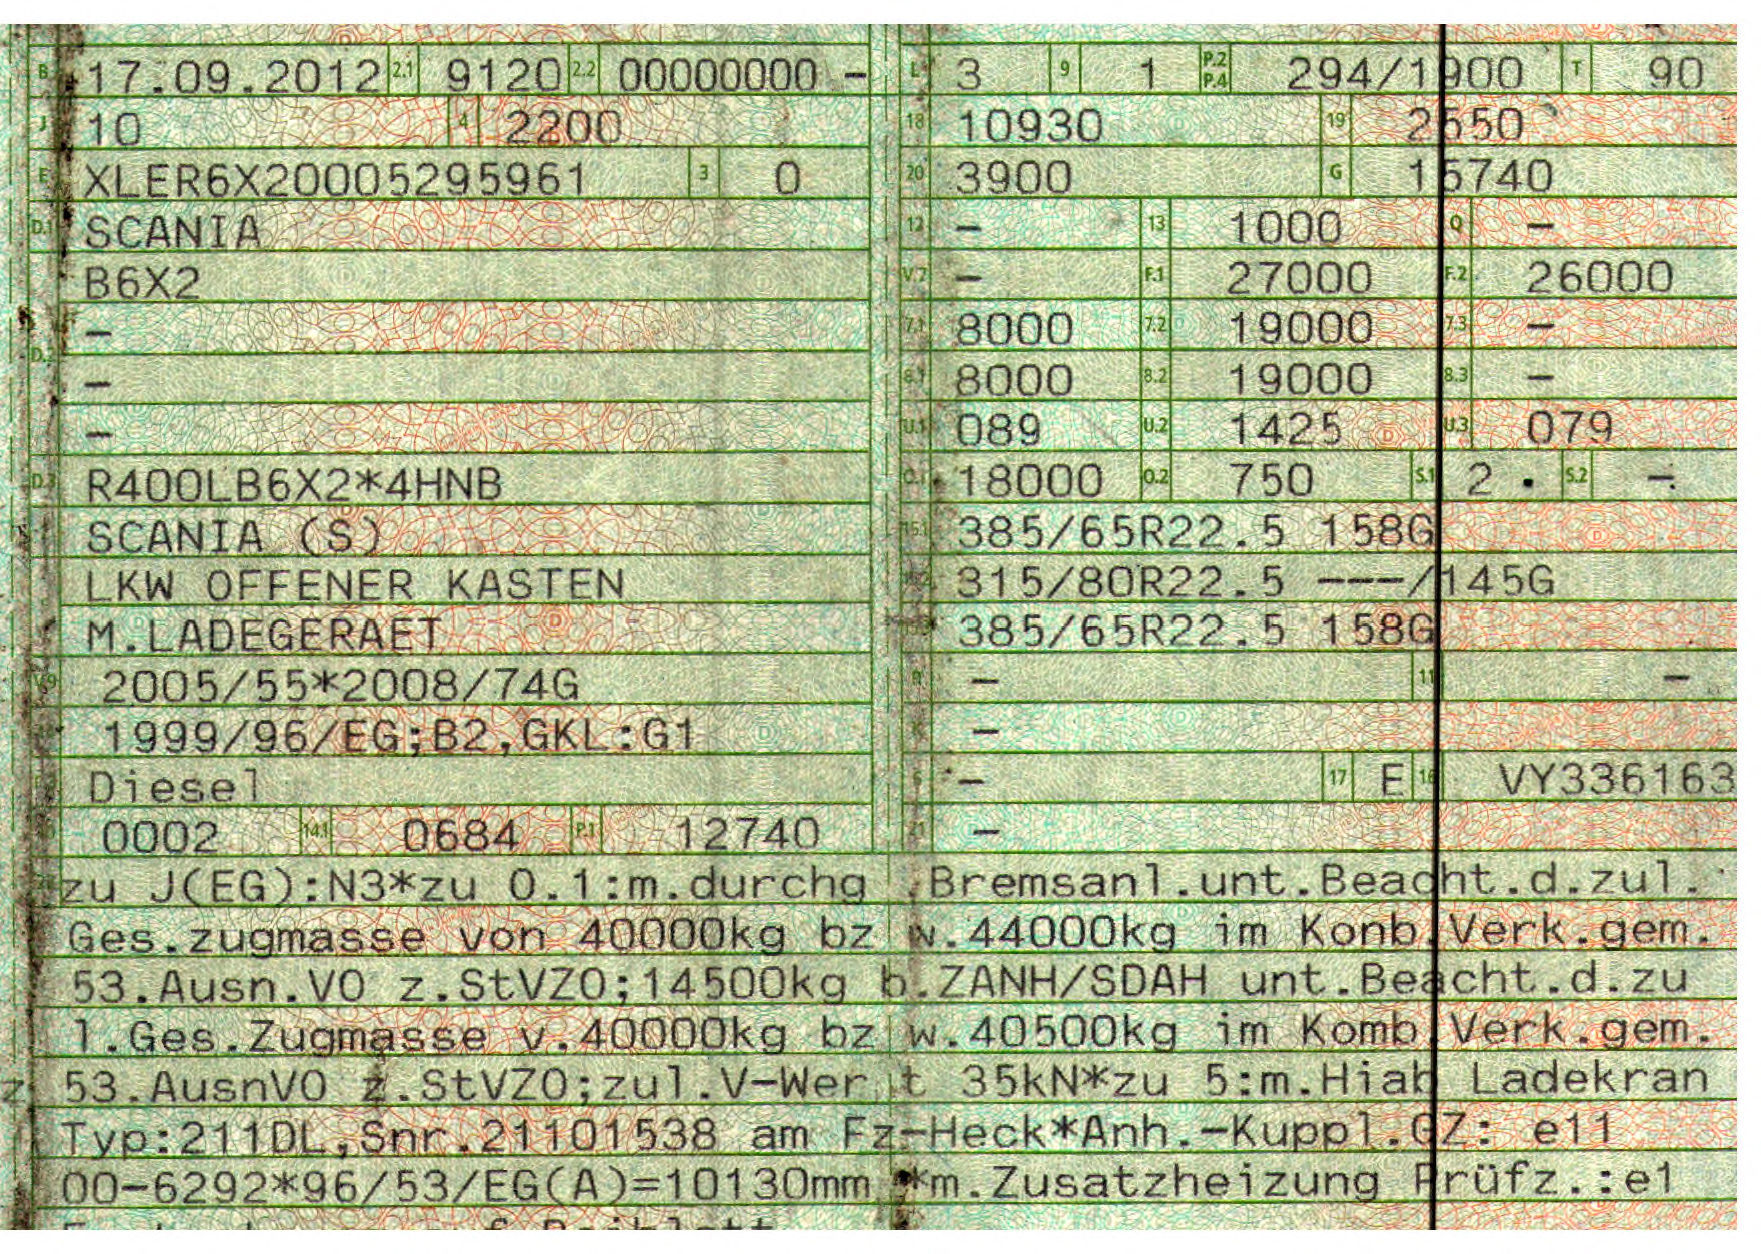 B 17.09.2012 2.1 9120 2.2 00000000 –
J 10 4 2200
E XLER6X20005295961 3 0
D.1 SCANIA
B6X2
–
D.2 –
–
D.3 R400LB6X2*4HNB
SCANIA (S)
LKW OFFENER KASTEN
M.LADEGERAET
V.9 2005/55*2008/74G
1999/96/EG;B2,GKL:G1
Diesel
0002 14.1 0684 P.1 12740
L 3 9 1 P.2 P.4 294/1900 T 90
18 10930 19 2550
20 3900 G 15740
12 – 13 1000 Q –
V.7 – F.1 27000 F.2 26000
7.1 8000 7.2 19000 7.3 –
8.1 8000 8.2 19000 8.3 –
U.1 089 U.2 1425 U.3 079
O.1 18000 O.2 750 S.1 2 S.2 –
15.1 385/65R22.5 158G
15.2 315/80R22.5 ---/145G
385/65R22.5 158G
R – 11 –
–
6 – 17 E 16 VY336163
21 –
zu J(EG):N3*zu O.1:m.durchg.Bremsanl.unt.Beacht.d.zul.
Ges.zugmasse von 40000kg bzw.44000kg im Konb.Verk.gem.
53.Ausn.VO z.StVZO;14500kg b.ZANH/SDAH unt.Beacht.d.zu
l.Ges.Zugmasse v.40000kg bzw.40500kg im Komb.Verk.gem.
53.AusnVO z.StVZO;zul.V-Wert 35kN*zu 5:m.Hiab Ladekran
Typ:211DL,Snr.21101538 am Fz-Heck*Anh.-Kuppl.GZ: e11
00-6292*96/53/EG(A)=10130mm *m.Zusatzheizung Prüfz.:e1